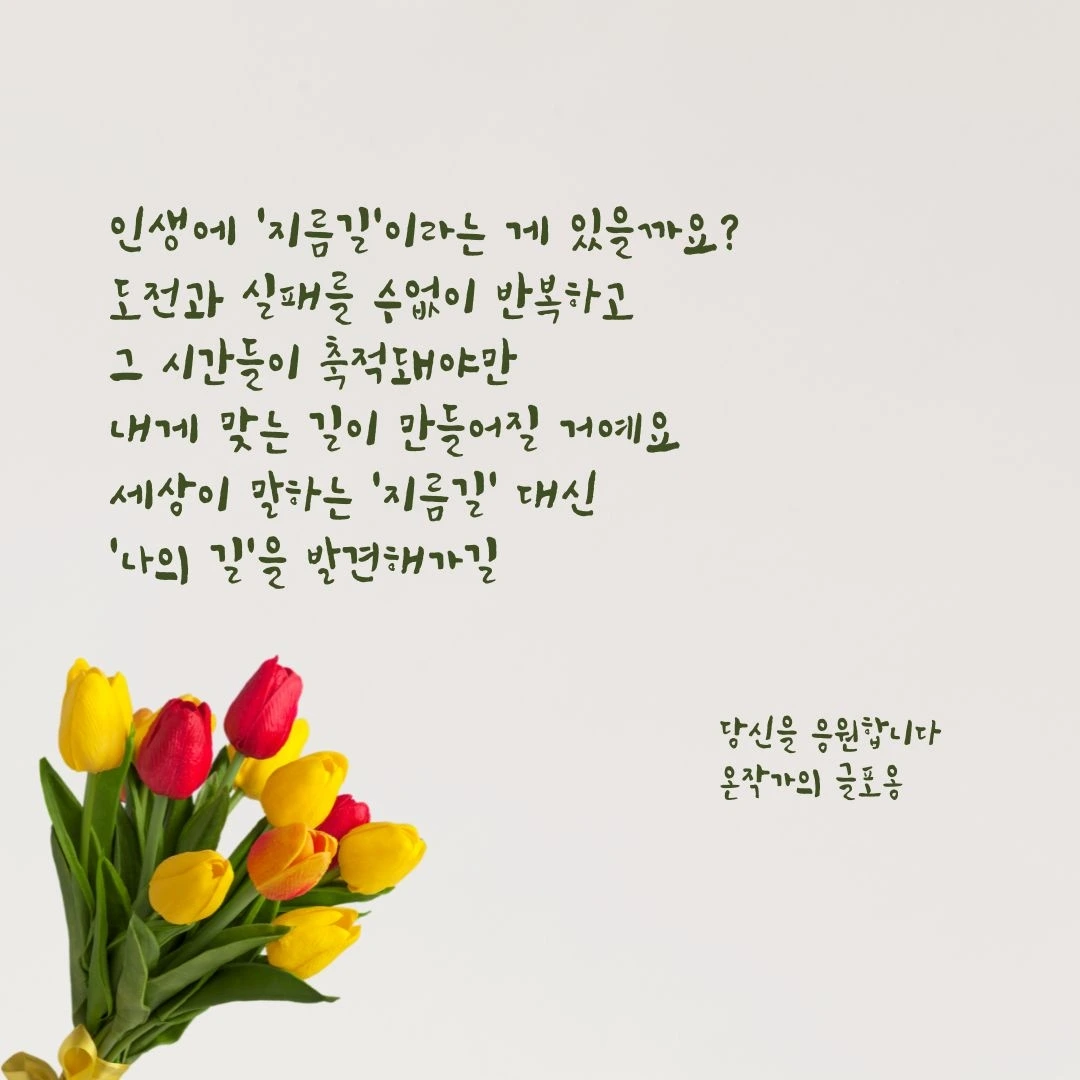 인생에 '지름길'이라는 게 있을까요?
도전과 실패를 수없이 반복하고
그 시간들이 축적돼야만
내게 맞는 길이 만들어질 거예요
세상이 말하는 '지름길' 대신
'나의 길'을 발견해가길
당신을 응원합니다
온작가의 글포옹